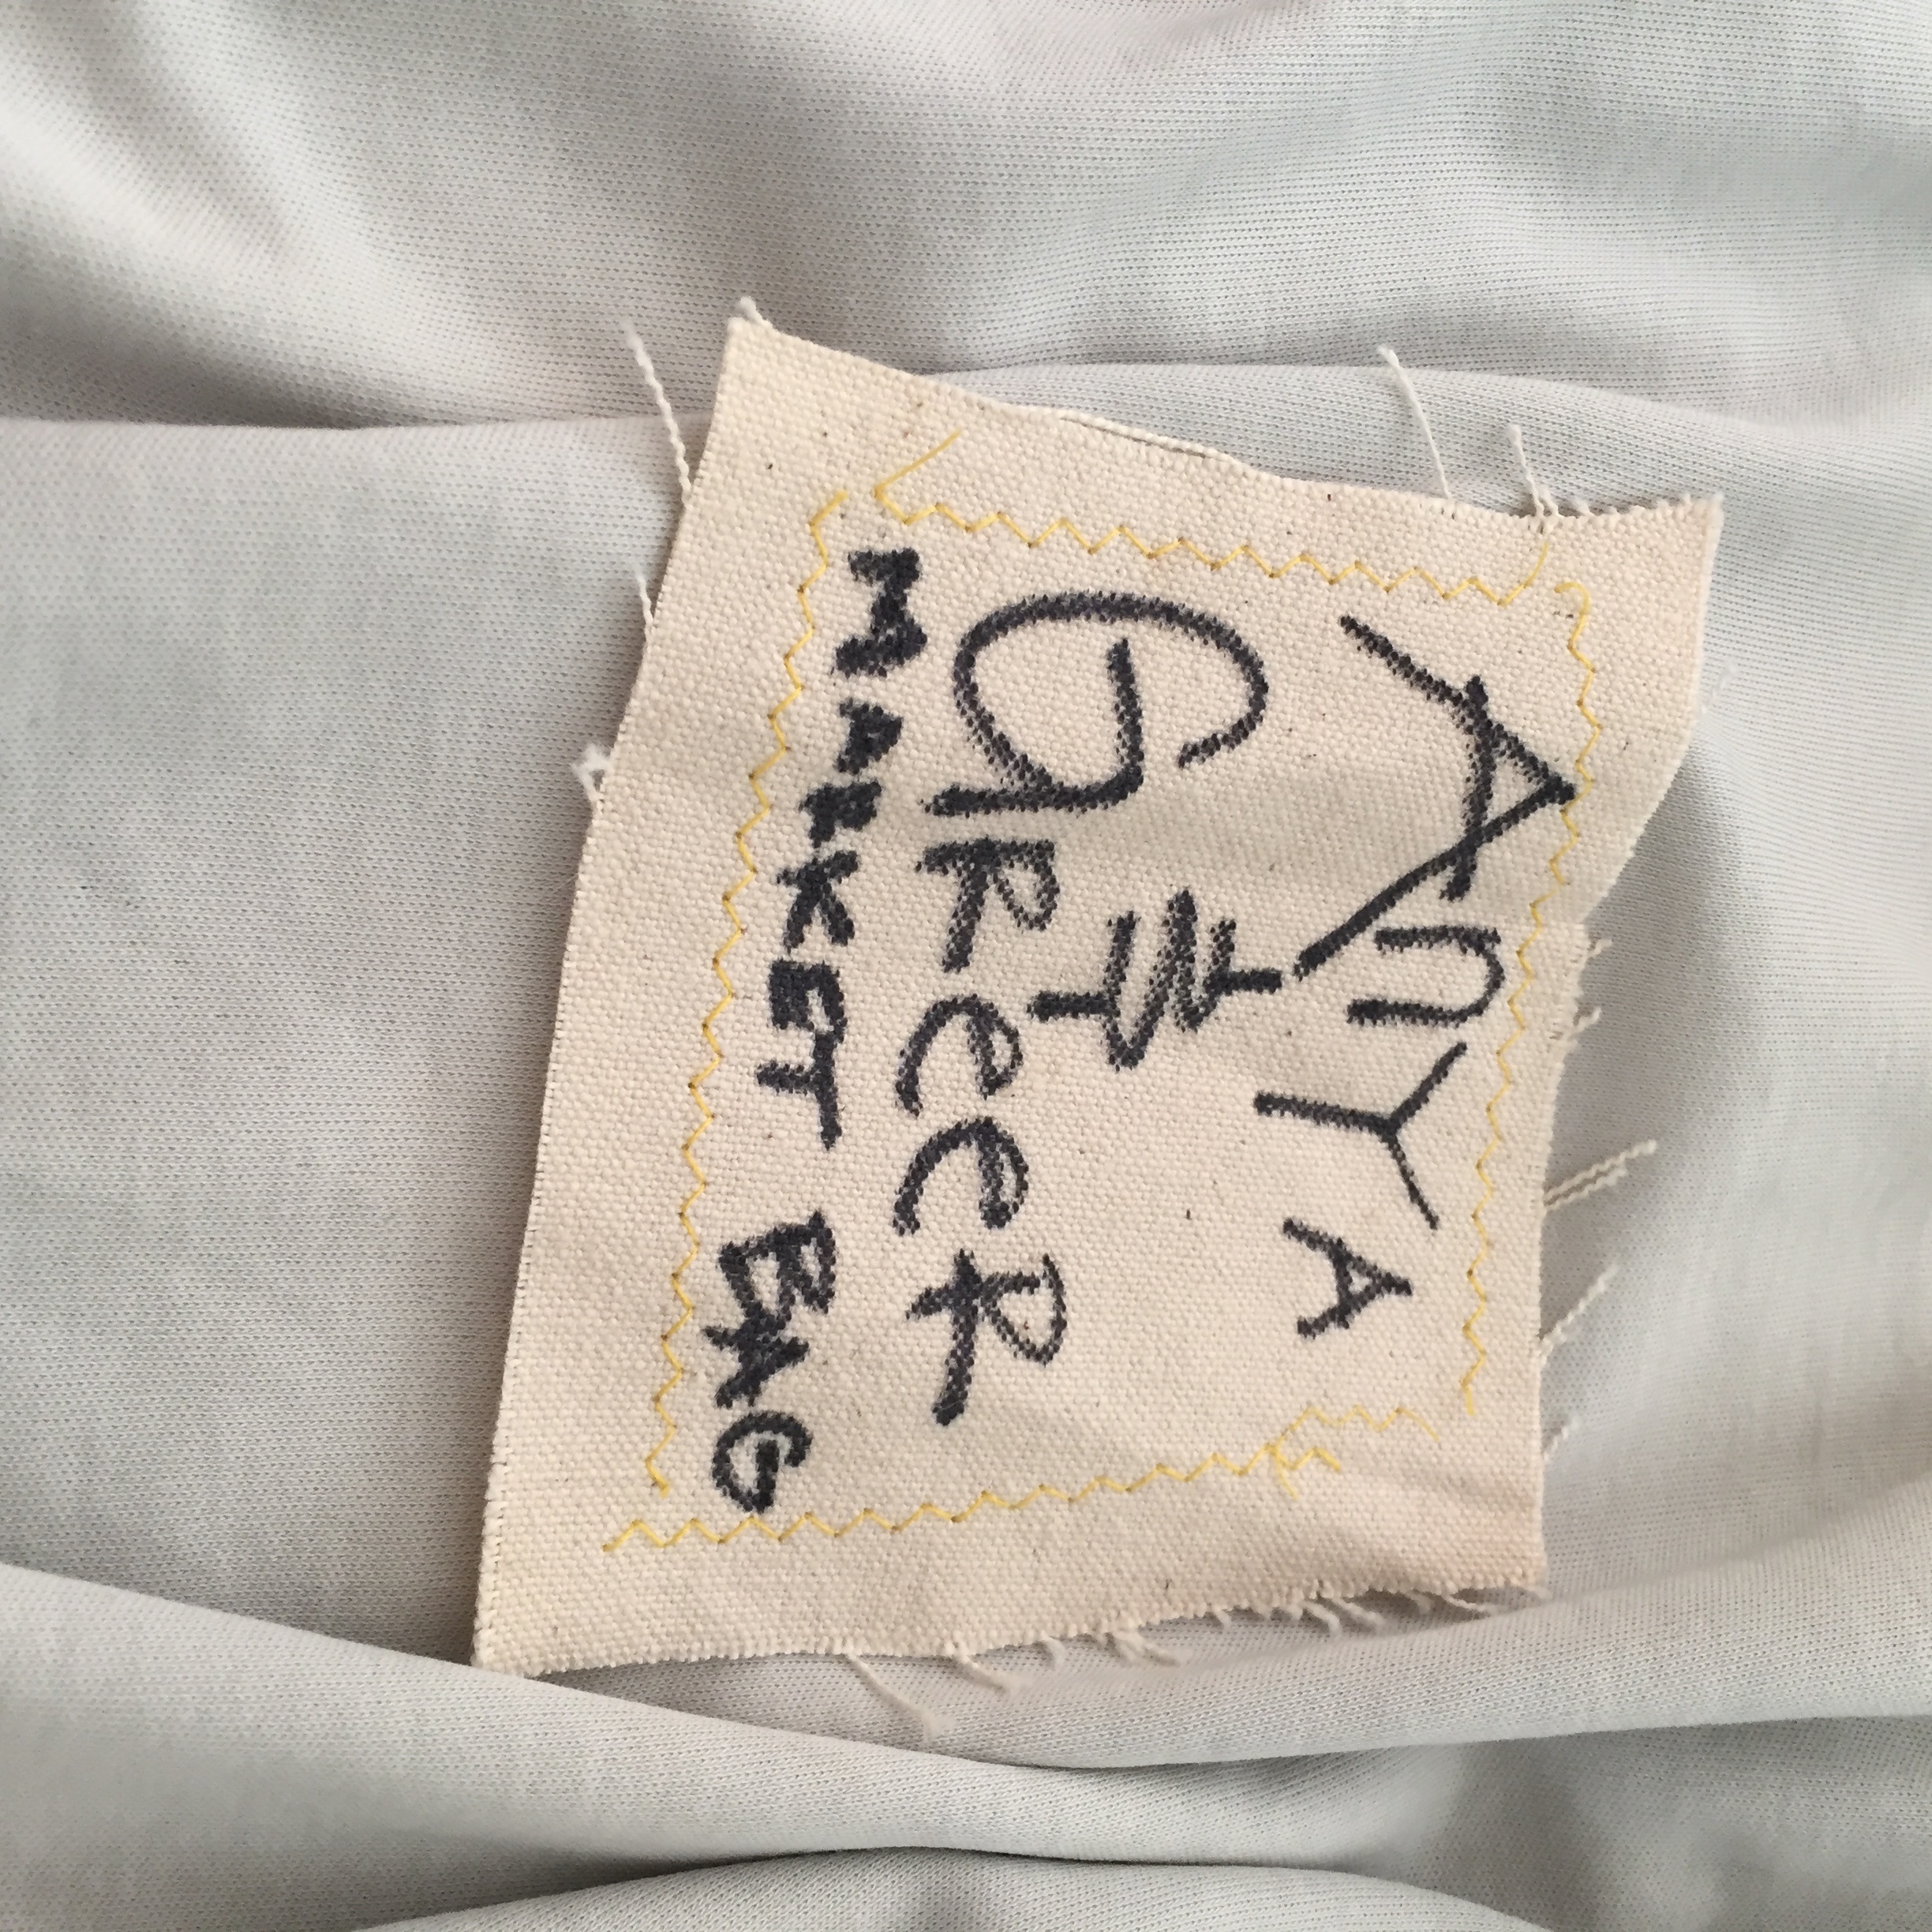 AnYA
GReeR
MARKET BAG